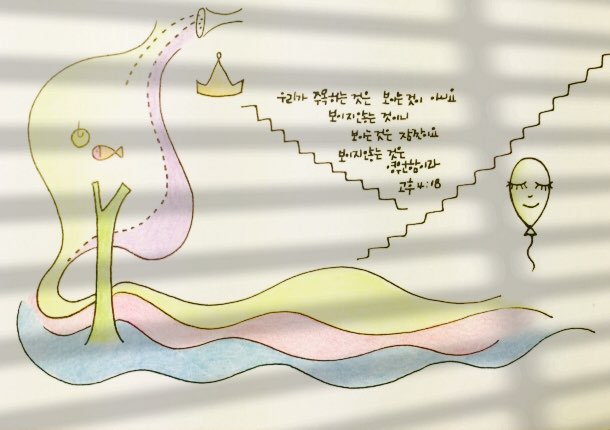 우리가 주목하는 것은 보이는 것이 아니요
보이지 않는 것이니
보이는 것은 잠깐이요
보이지 않는 것은
영원함이라
고후 4:18